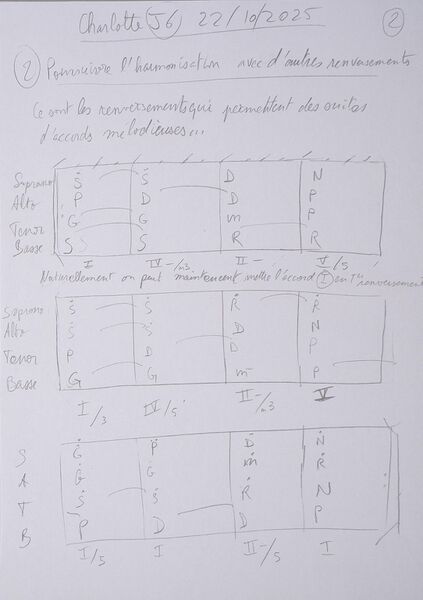 Charlotte (J6) 22/10/2025 (2)
(2) Poursuivre l'harmonisation avec d'autres renversements
Ce sont les renversements qui permettent des suites
d'accords mélodieuses...
Soprano Ṡ Ṡ D N
Alto P D D P
Tenor G G m P
Basse S S R R
I IV-/m3 II- V/5
Naturellement on peut maintenant mettre l'accord (I) en 1er renversement
Soprano Ṡ Ṡ Ṙ Ṙ
Alto Ṡ Ṡ D N
Tenor P D D P
Basse G G m P
I/3 IV/5 II-/m3 V
S Ġ Ṗ Ḋ Ṅ
A Ġ G ṁ Ṙ
T Ṡ Ṡ Ṙ N
B P D D P
I/5 I II-/5 I